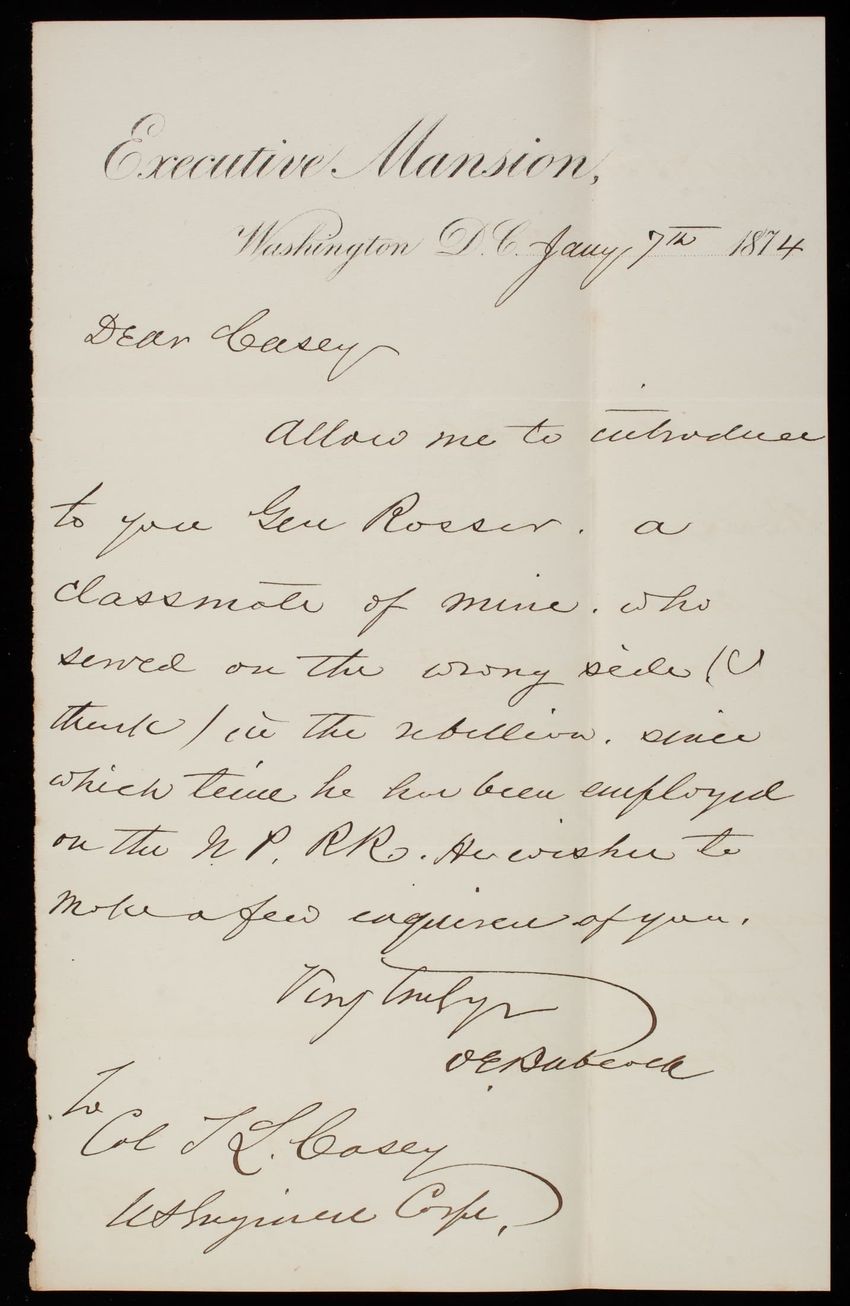 Executive Mansion,
Washington D.C. Jany 7th 1874
Dear Casey
Allow me to introduce
to you Gen Rosser. a
classmate of mine. who
served on the wrong side (I
think) in the rebellion. since
which time he has been employed
on the N. P. RR. He wishes to
make a few inquiries of you.
Very truly yr
O E Babcock
To
Col T L. Casey
US Engineer Corps,